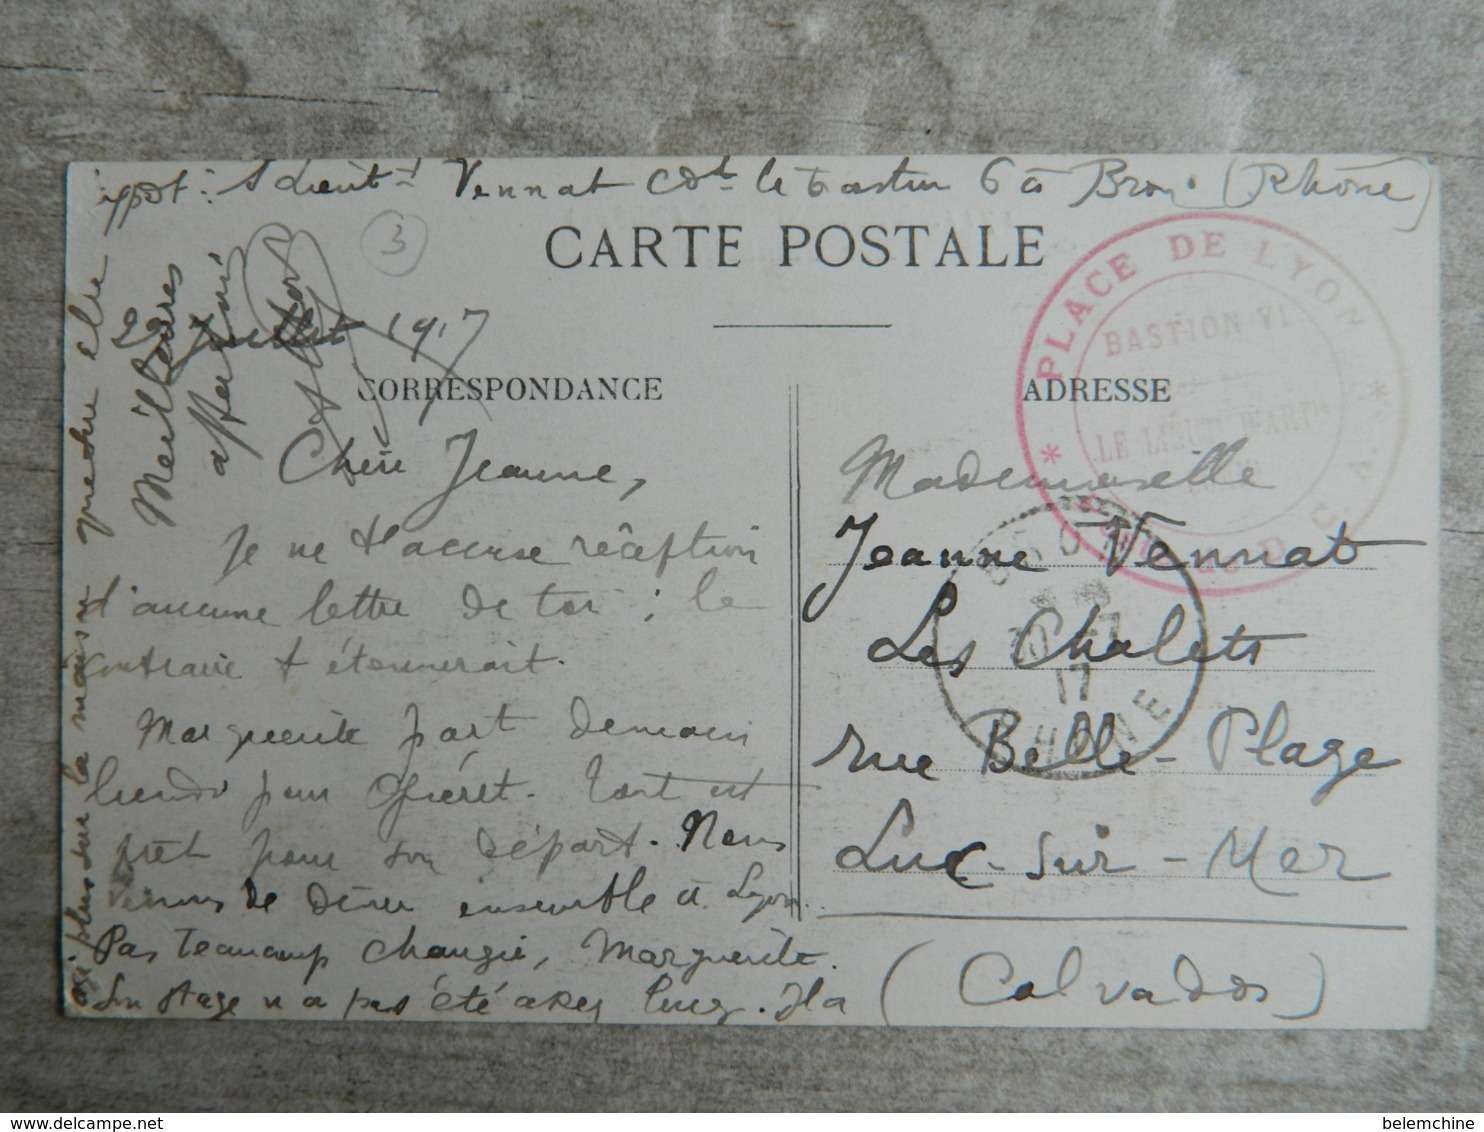 expdt : S/Lieut-t Vennat Cdt le bastion 6 à Bron (Rhône)
3
CARTE POSTALE
22 Juillet 1917
CORRESPONDANCE
Chère Jeanne,
Je ne t'accuse réception
d'aucune lettre de toi ; le
contraire t'étonnerait.
Marguerite part demain
lundi pour
Tout est
prêt pour son départ. Nous
venons de dîner ensemble à Lyon.
Pas beaucoup changée, Marguerite.
Son stage n'a pas été assez long. Il a
plus sur la maison que sur elle
Meilleures
affections
ADRESSE
Mademoiselle
Jeanne Vennat
Les Chalets
rue Belle-Plage
Luc-sur-Mer
(Calvados)
* PLACE DE LYON *
BASTION VI
LE LIEUT D'ART
BRON
17
RHONE
delcampe.net
belemchine